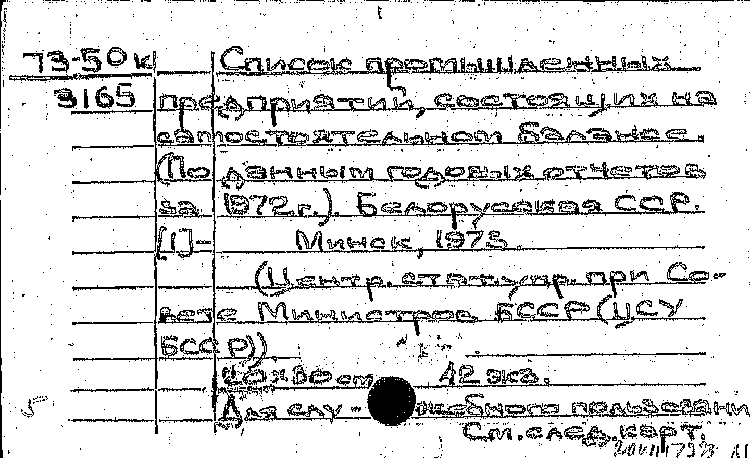 73-50к Список промышленных
3165 предприятий, состоящих на
самостоятельном балансе.
(По данным годовых отчетов
за 1972г.). Белорусская ССР.
[1]- Минск, 1973.
(Центр. стат. упр. при Со-
вете Министров БССР (ЦСУ
БССР)).
20х30 см. 42 экз.
Для слу- жебного пользовани
См. след. карт.